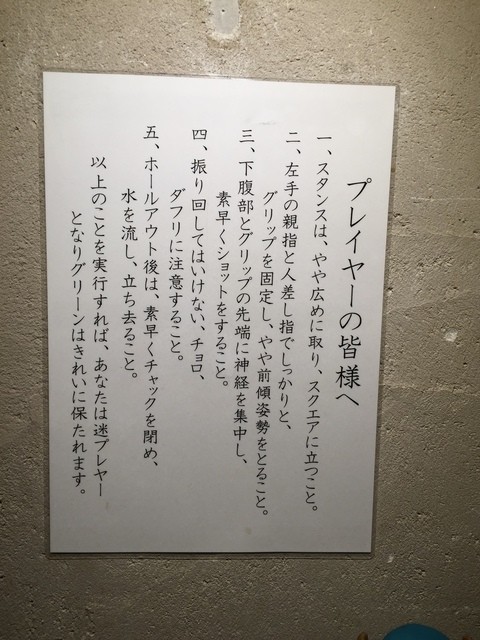 プレイヤーの皆様へ
一、スタンスは、やや広めに取り、スクエアに立つこと。
二、左手の親指と人差し指でしっかりと、
グリップを固定し、やや前傾姿勢をとること。
三、下腹部とグリップの先端に神経を集中し、
素早くショットをすること。
四、振り回してはいけない、チョロ、
ダフリに注意すること。
五、ホールアウト後は、素早くチャックを閉め、
水を流し、立ち去ること。
以上のことを実行すれば、あなたは迷プレヤー
となりグリーンはきれいに保たれます。